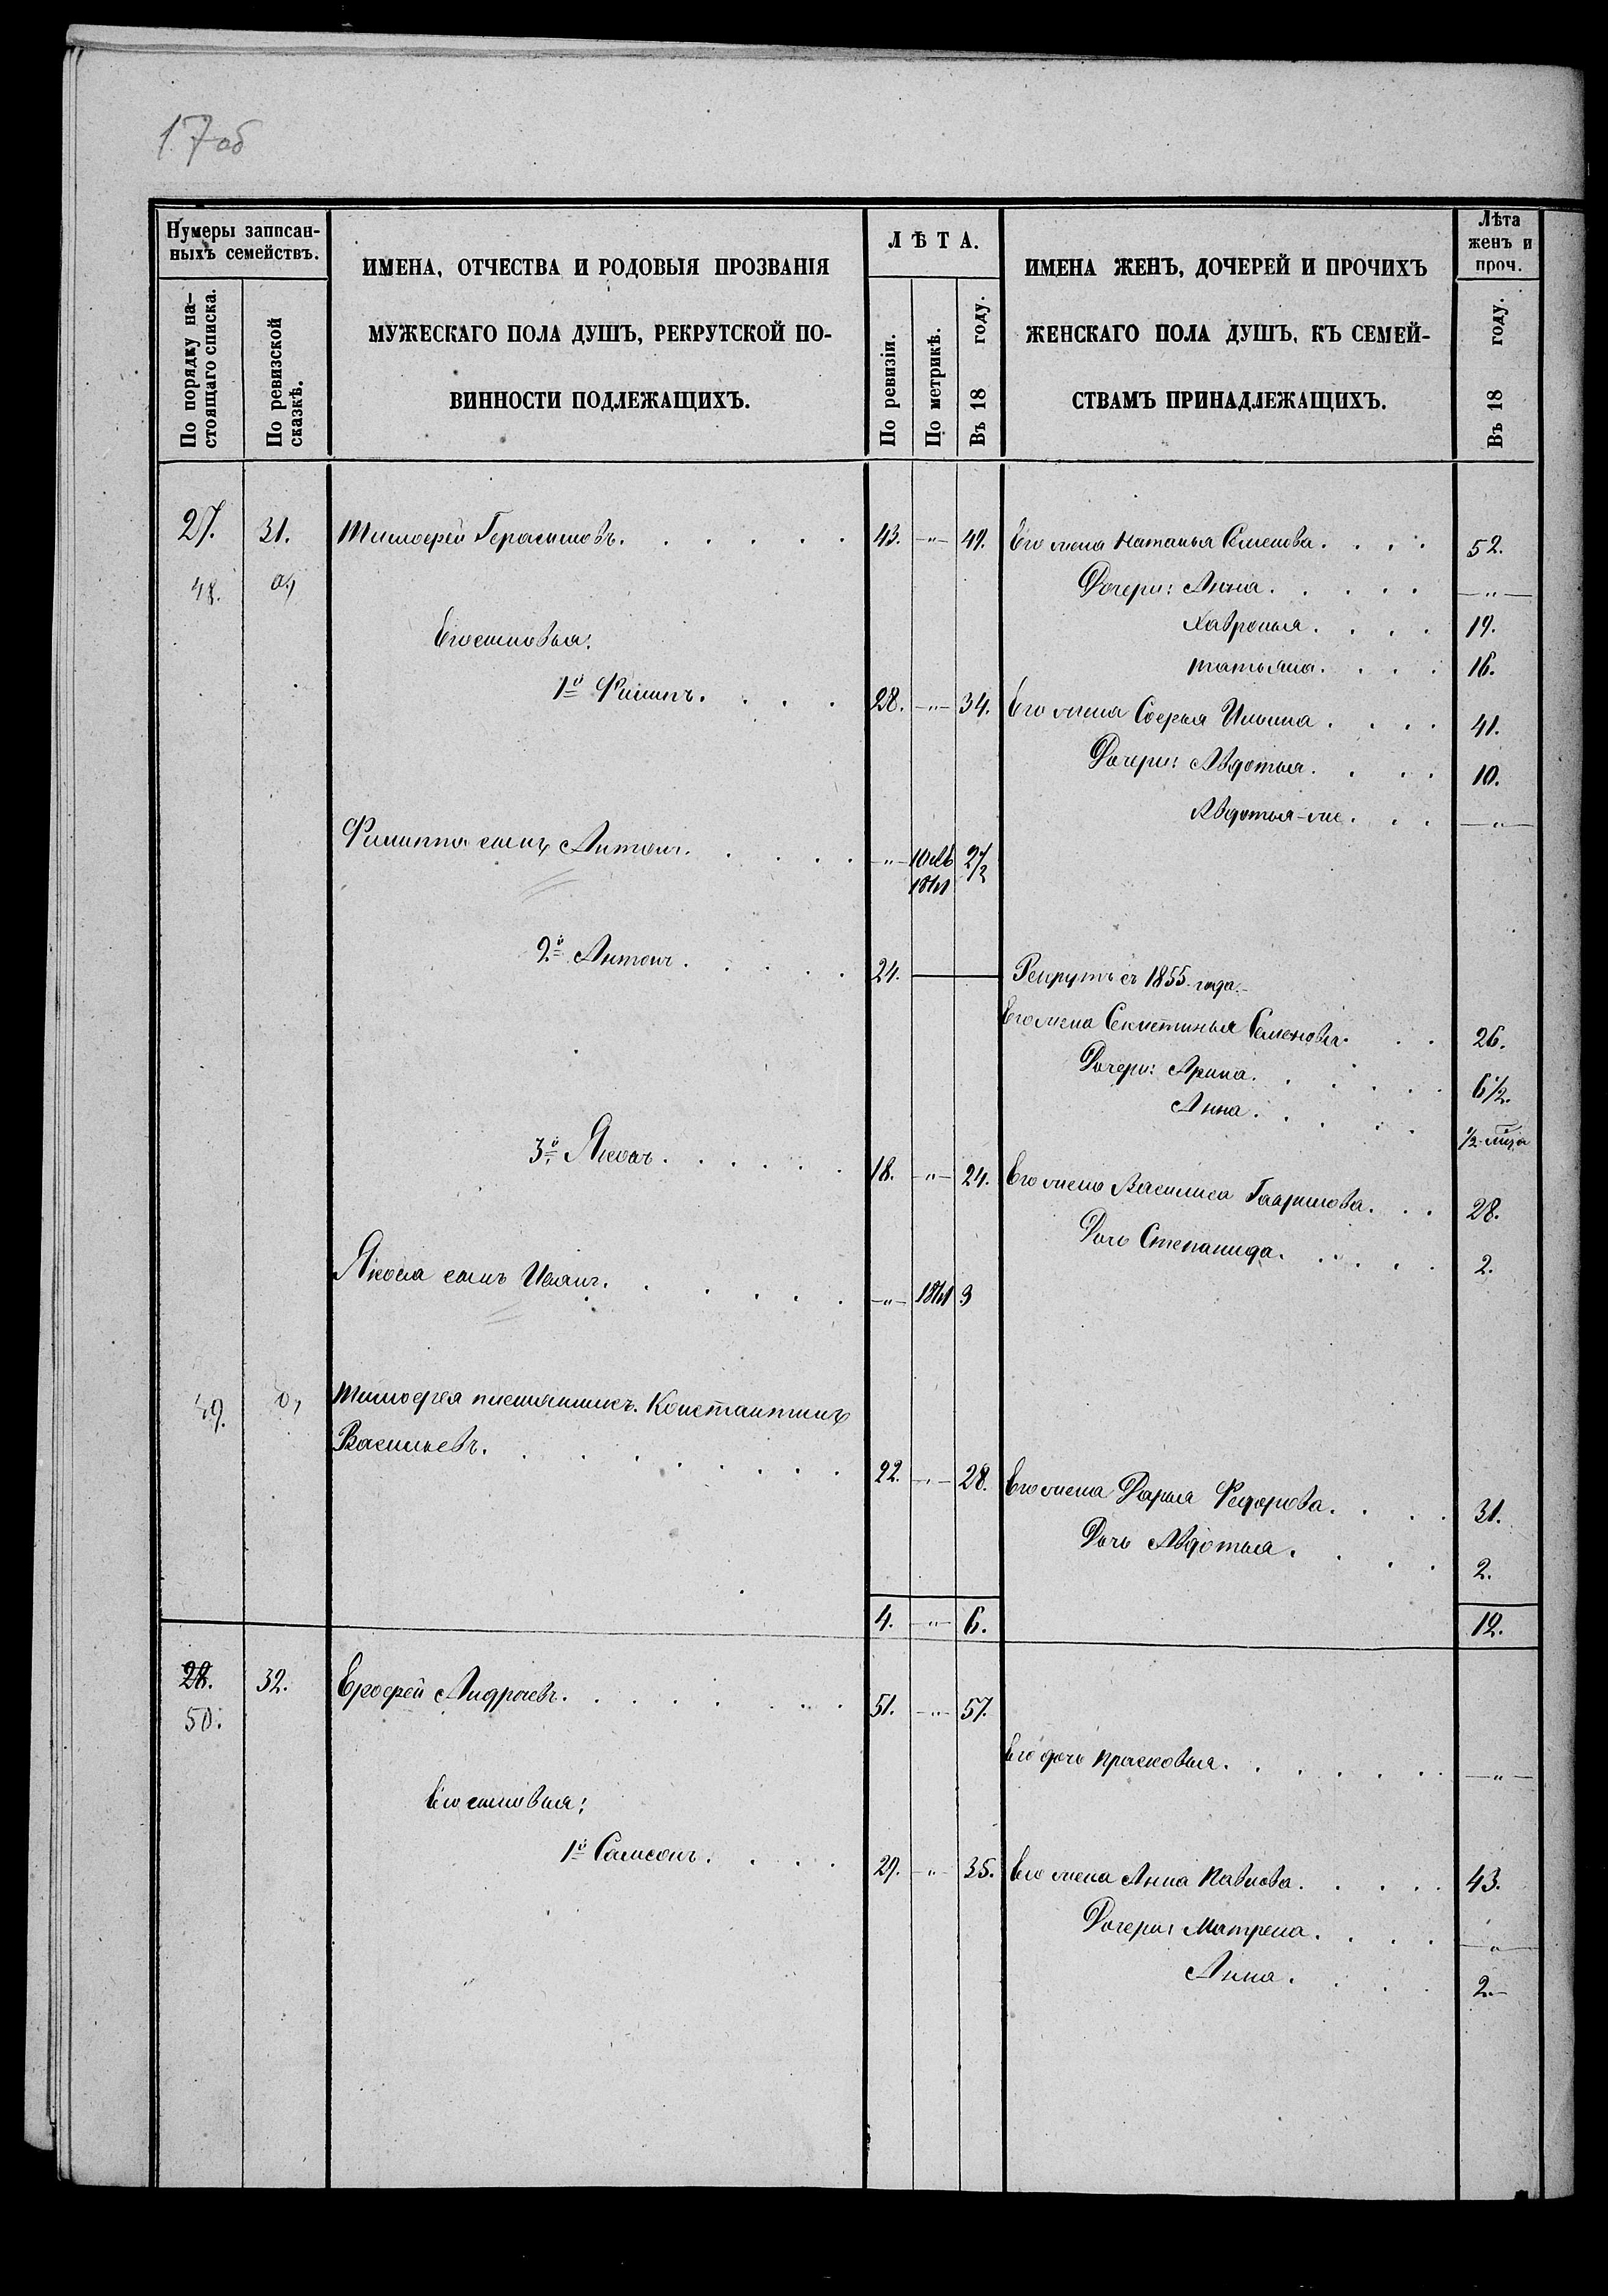 17 об
Нумеры записан-
ныхъ семействъ.
По порядку на-
стоящаго списка.
По ревизской
сказкѣ.
ИМЕНА, ОТЧЕСТВА И РОДОВЫЯ ПРОЗВАНІЯ
МУЖЕСКАГО ПОЛА ДУШЪ, РЕКРУТСКОЙ ПО-
ВИННОСТИ ПОДЛЕЖАЩИХЪ.
ЛѢТА.
По ревизіи.
По метрикѣ.
Въ 18 году.
ИМЕНА ЖЕНЪ, ДОЧЕРЕЙ И ПРОЧИХЪ
ЖЕНСКАГО ПОЛА ДУШЪ, КЪ СЕМЕЙ-
СТВАМЪ ПРИНАДЛЕЖАЩИХЪ.
Лѣта
женъ и
проч.
Въ 18 году.
27. 31. Тимофей Герасимовъ. 43. -"- 49. Его жена Наталья Семенова. 52.
48. Дочери: Анна. -"-
Его сыновья: Хавронья. 19.
Татьяна. 16.
1й Филипъ. 28. -"- 34. Его жена Софья Ильина. 41.
Дочери: Авдотья. 10.
Авдотья-же. -"-
Филиппа сынъ Антонъ. -"-
2й Антонъ. 24. Рекрутъ съ 1855 года.
Его жена Секлетинья Семенова. 26.
Дочери: Арина. 6½.
Анна. ½
3й Яковъ. 18. -"- 24. Его жена Василиса Гаврилова. 28.
Дочь Степанида. 2.
Якова сынъ Иванъ. -"- 1861 3
49. Тимофея племянникъ. Константинъ
Васильевъ. 22. -"- 28. Его жена Дарья Федорова. 31.
Дочь Авдотья. 2.
4. -"- 6. 12.
28. 32. Ерофей Андреевъ. 51. -"- 57.
50.
Его дочь Прасковья. -"-
Его сыновья:
1й Самсонъ. 29. -"- 35. Его жена Анна Павлова. 43.
Дочери: Матрена. -"-
Анна. 2.